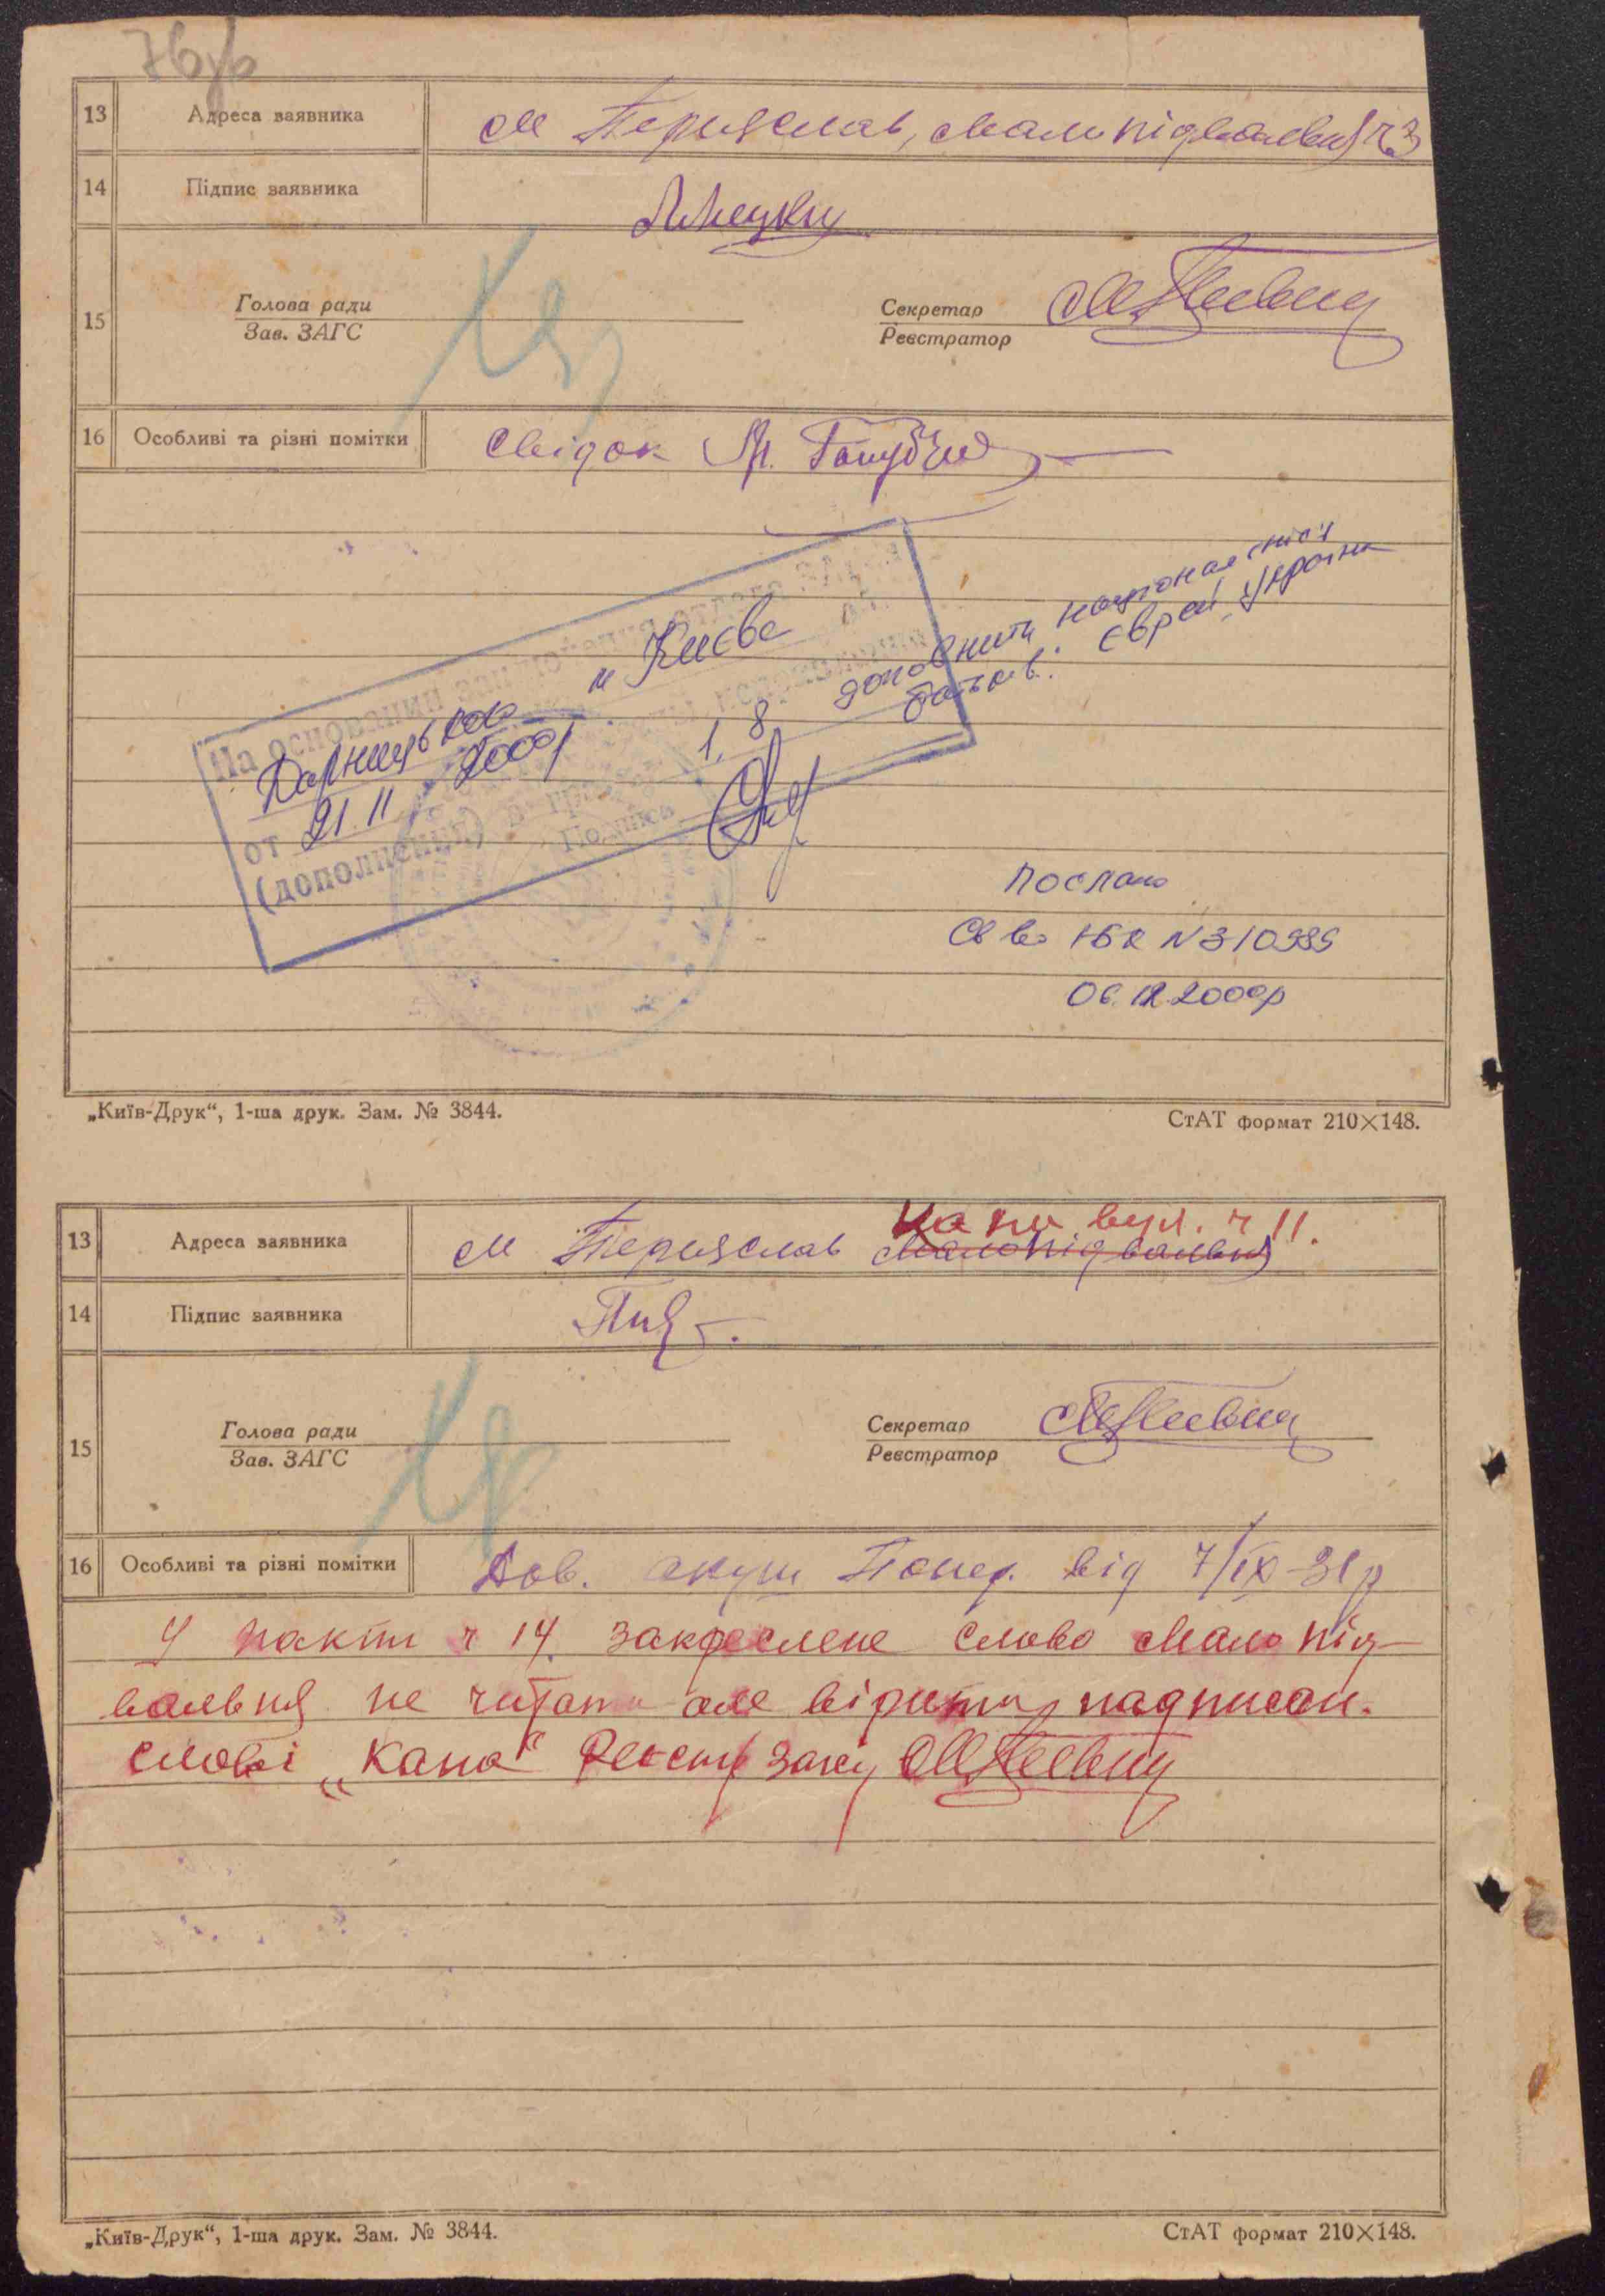 13 Адреса заявника м Переяслав, Малопідвальня ч 3
14 Підпис заявника
15 Голова ради Секретар
Зав. ЗАГС Реєстратор
16 Особливі та різні помітки Свідок
На основании отдела ЗАГС
Дарницького м Києва
от 21.11 2000р
(дополнения) в 1, 8
Подпись
доповнити національність
батьків: Єврей, Українка
Послано
Св во І-БК N 310989
06.12.2000р
„Київ-Друк“, 1-ша друк. Зам. № 3844. СтАТ формат 210×148.
Капн вул. ч 11.
13 Адреса заявника м Переяслав Малопідвальня
14 Підпис заявника
15 Голова ради Секретар
Зав. ЗАГС Реєстратор
16 Особливі та різні помітки Дов. акуш від 7/IX-31р
У ч 14 закреслене слово Малопід-
вальня не читати але вірити надписан.
слові „Капн“ Реєстр Загсу
„Київ-Друк“, 1-ша друк. Зам. № 3844. СтАТ формат 210×148.